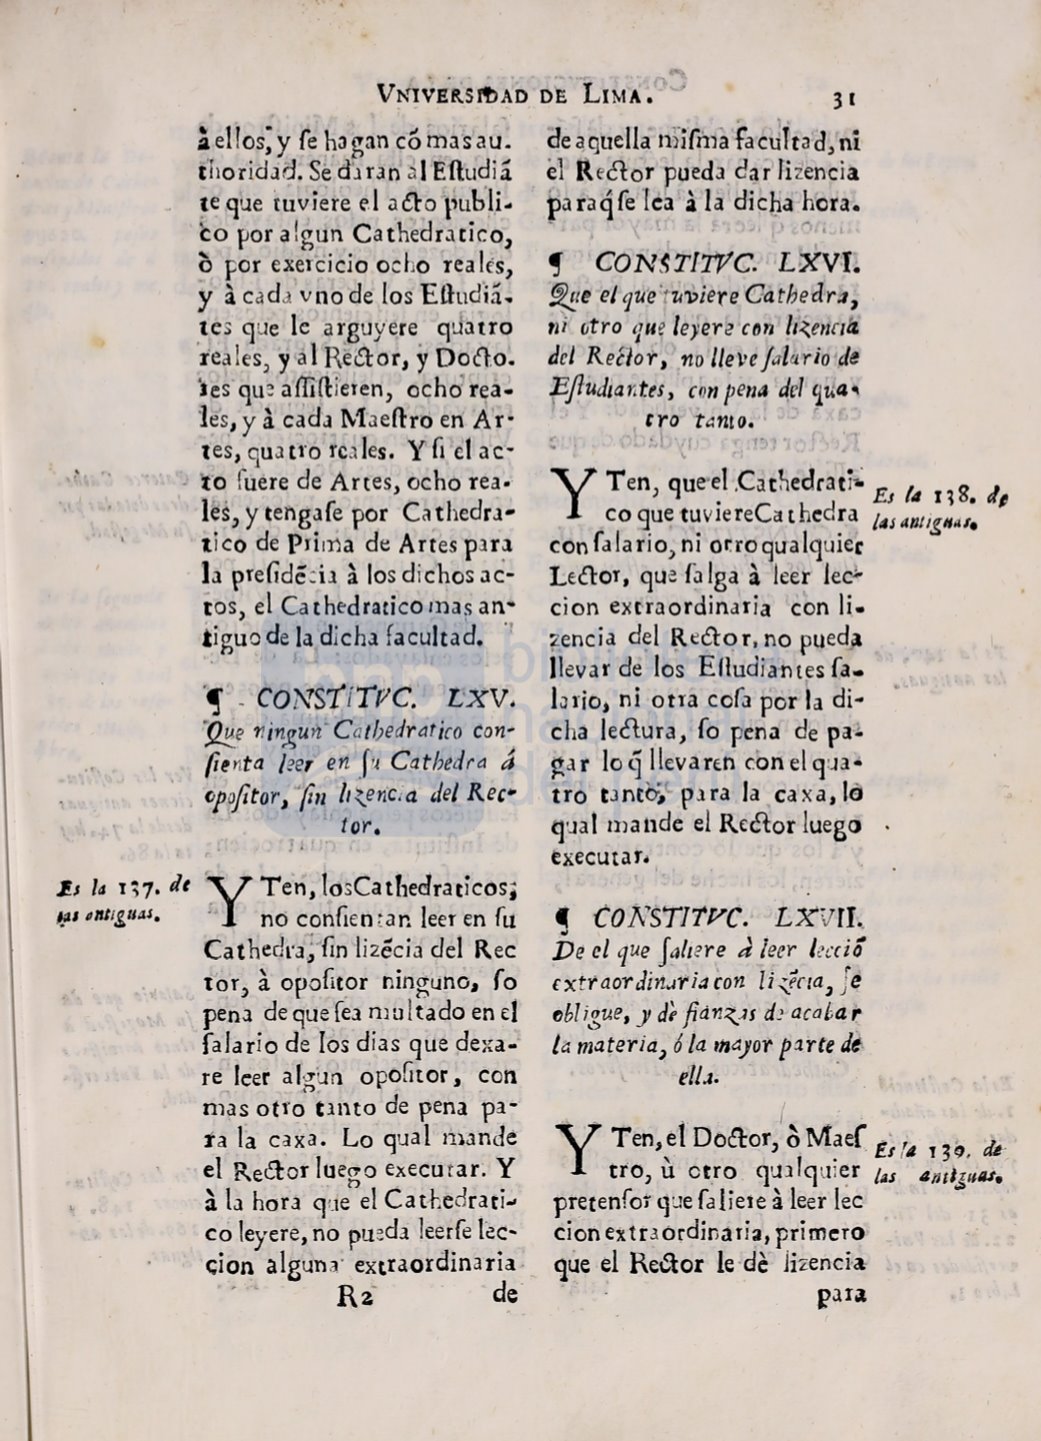 VNIVERSIDAD DE LIMA. 31
à ellos, y ſe hagan cõ mas au-
thoridad. Se daran al Eſtudiã
te que tuviere el acto publi-
co por algun Cathedratico,
ò por exercicio ocho reales,
y à cada vno de los Eſtudiã-
tes que le arguyere quatro
reales, y al Rector, y Docto-
res que aſſiſtieren, ocho rea-
les, y à cada Maeſtro en Ar-
tes, quatro reales. Y ſi el ac-
to fuere de Artes, ocho rea-
les, y tengaſe por Cathedra-
tico de Prima de Artes para
la preſidẽcia à los dichos ac-
tos, el Cathedratico mas an-
tiguo de la dicha facultad.
¶ CONSTITVC. LXV.
Que ningun Cathedratico con-
ſienta leer en ſu Cathedra á
opoſitor, ſin lizencia del Rec-
tor.
Es la 137. de
las antiguas.
YTen, los Cathedraticos;
no conſientan leer en ſu
Cathedra, ſin lizẽcia del Rec
tor, à opoſitor ninguno, ſo
pena de que ſea multado en el
ſalario de los dias que dexa-
re leer algun opoſitor, con
mas otro tanto de pena pa-
ra la caxa. Lo qual mande
el Rector luego executar. Y
à la hora que el Cathedrati-
co leyere, no pueda leerſe lec-
cion alguna extraordinaria
R2 de
de aquella miſma facultad, ni
el Rector pueda dar lizencia
para q̃ ſe lea à la dicha hora.
¶ CONSTITVC. LXVI.
Que el que tuviere Cathedra,
ni otro que leyere con lizencia
del Rector, no lleve ſalario de
Eſtudiantes, con pena del qua-
tro tanto.
YTen, que el Cathedrati-
co que tuviere Cathedra
con ſalario, ni otro qualquier
Lector, que ſalga à leer lec-
cion extraordinaria con li-
zencia del Rector, no pueda
llevar de los Eſtudiantes ſa-
lario, ni otra coſa por la di-
cha lectura, ſo pena de pa-
gar lo q̃ llevaren con el qua-
tro tanto, para la caxa, lo
qual mande el Rector luego
executar.
Es la 138. de
las antiguas.
¶ CONSTITVC. LXVII.
De el que ſaliere à leer lecciõ
extraordinaria con lizẽcia, ſe
obligue, y dè fianzas de acabar
la materia, ó la mayor parte de
ella.
YTen, el Doctor, ò Maeſ
tro, ù otro qualquier
pretenſor que ſaliere à leer lec
cion extraordinaria, primero
que el Rector le dè lizencia
para
Es la 139. de
las antiguas.